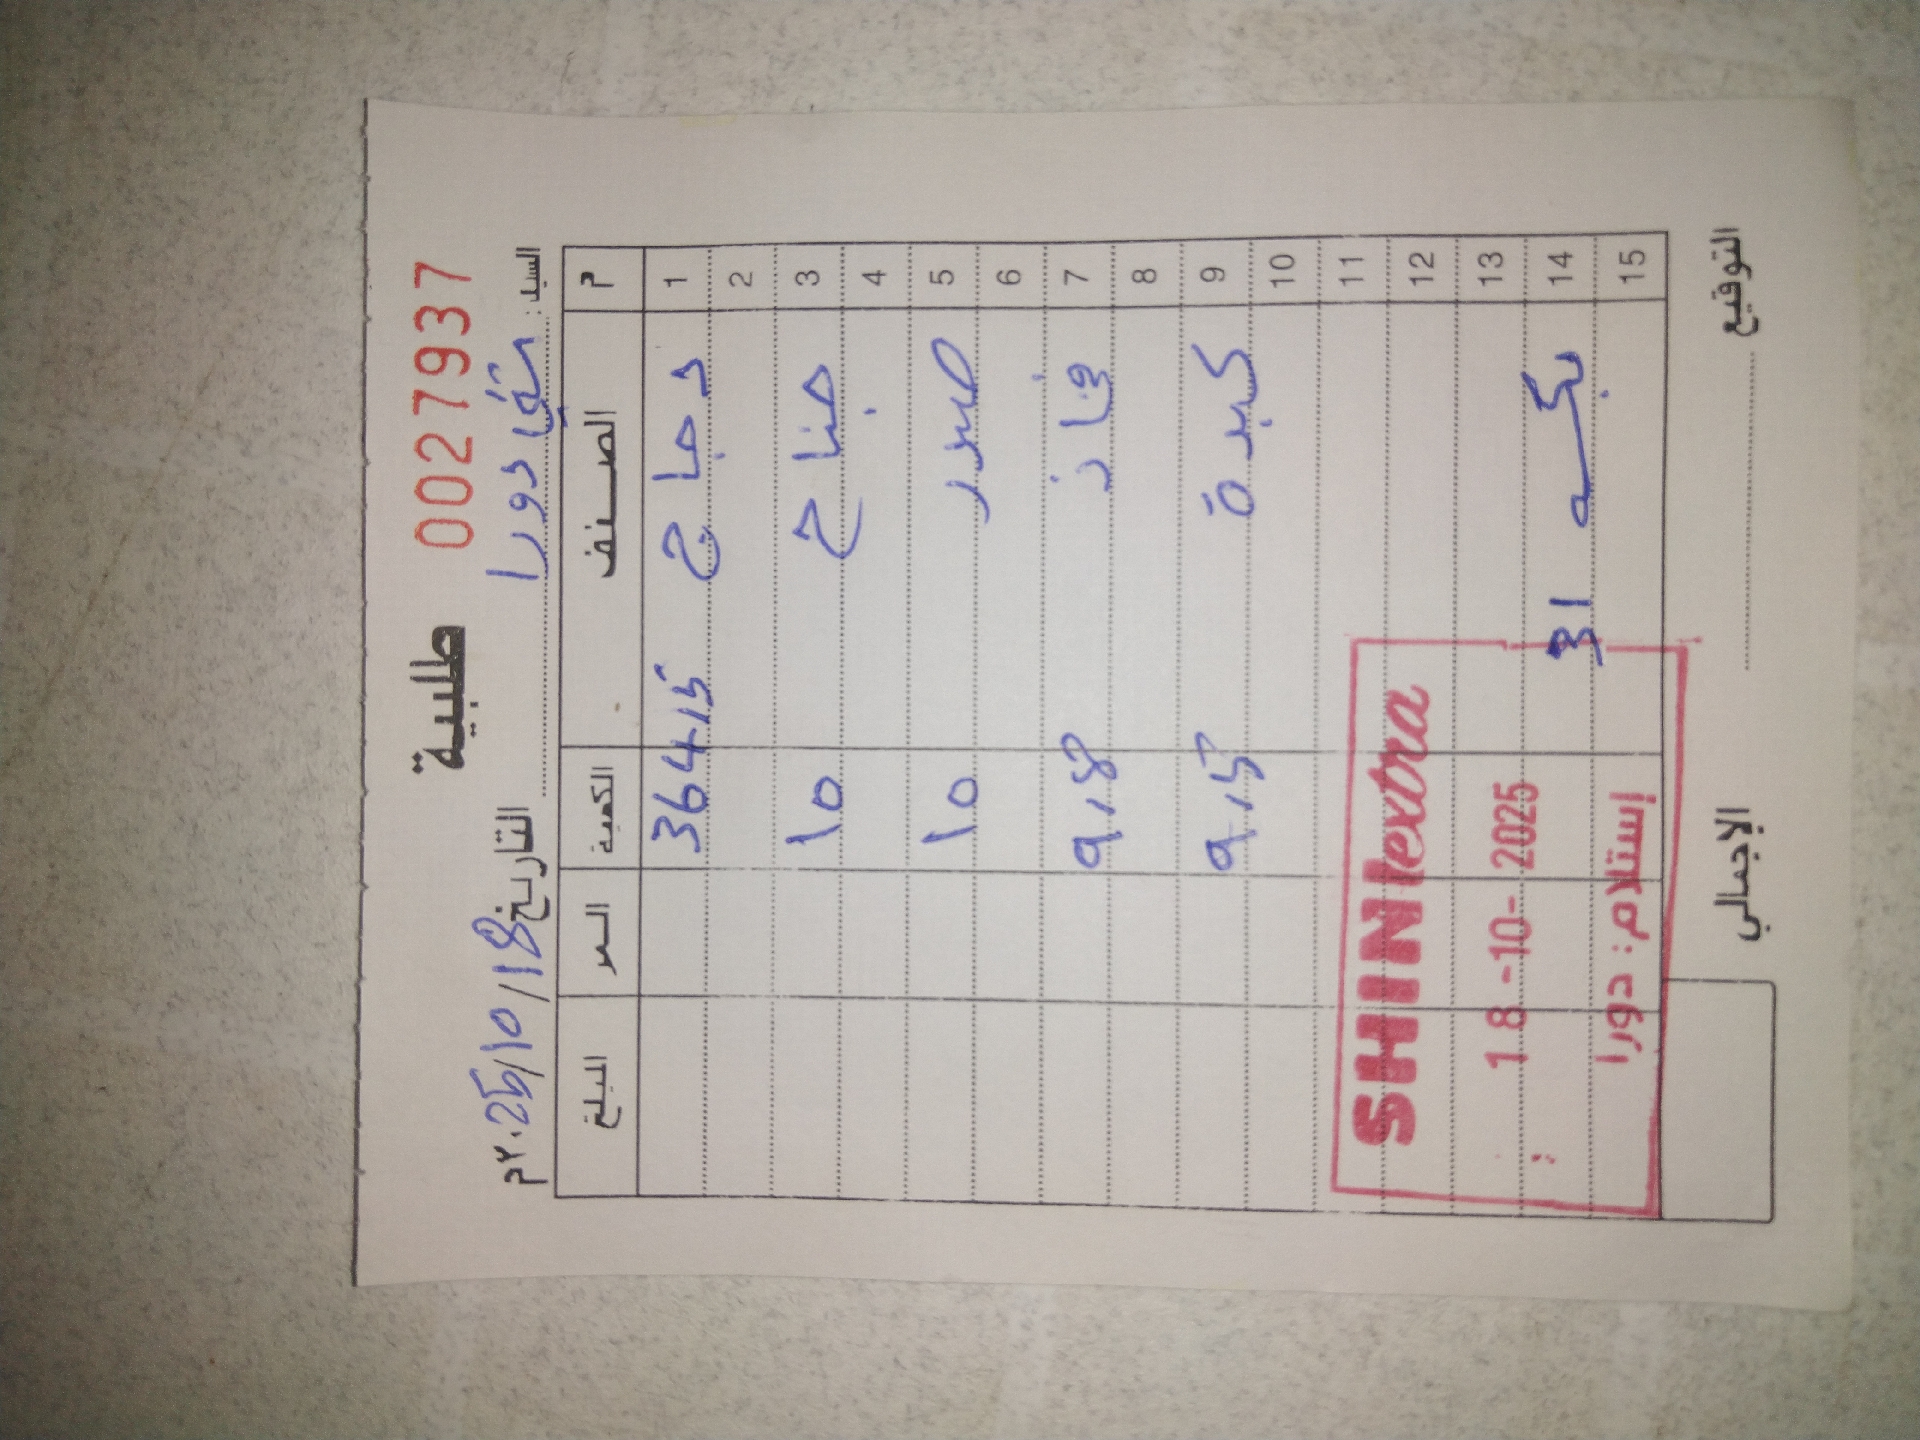 طلبية 0027937
السيد: شقادورا
التاريخ 18/10/2025م
م الصنف الكمية السعر المبلغ
1 دجاج
2
3 جناح 10
4
5 صدر 10
6
7 فخاذ 9,8
8
9 كبدة 9,5
10
11
12
13
14
15
SHINI extra
18-10-2025
إستلام: دورا
التوقيع
الإجمالي